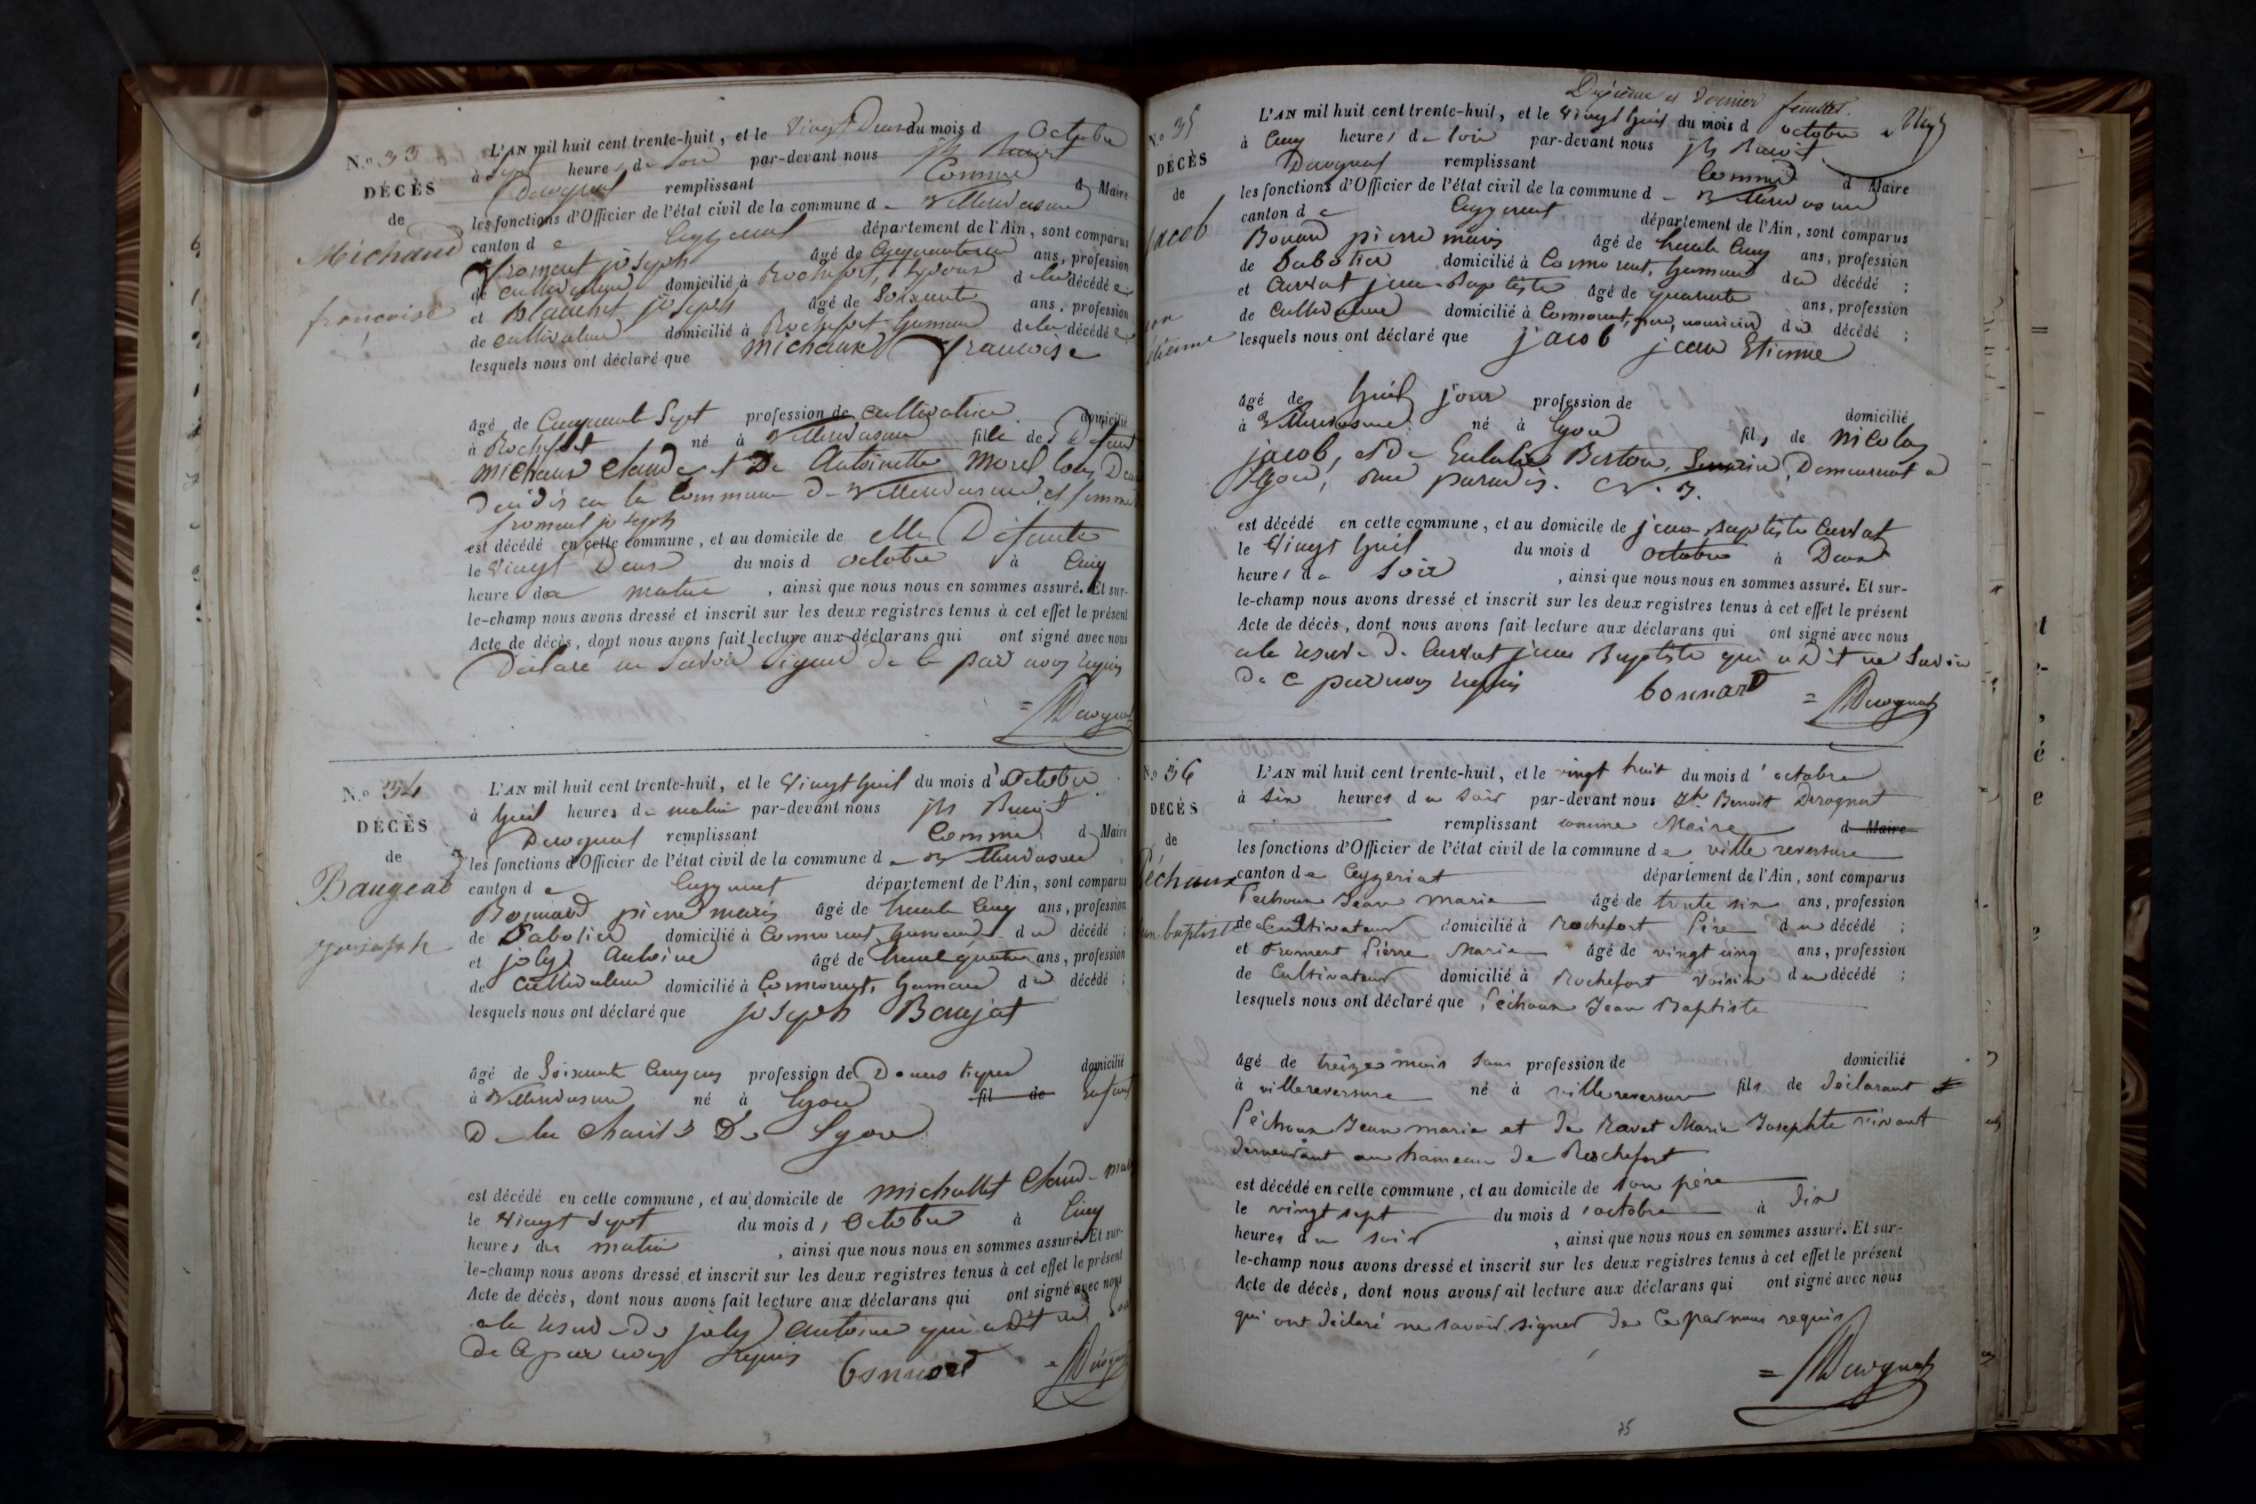 N.o 33
DÉCÈS
de
Michaud
françoise
L'AN mil huit cent trente-huit, et le vingt Deux du mois d octobre
à sept heures de soir par-devant nous jh Benoit
Derognat remplissant Comme d Maire
les fonctions d'Officier de l'état civil de la commune de Villereversure
canton de Ceyzeriat département de l'Ain, sont comparus
froment joseph âgé de ans, profession
de cultivateur domicilié à Rochefort, Epoux de la décédée
et Blanchet joseph âgé de Soixante ans, profession
de cultivateur domicilié à Rochefort hameau de la décédée
lesquels nous ont déclaré que michaux françoise
âgé de Cinquante Sept profession de cultivatrice domicilié
à Rochefort né à Villereversure fille de Defunt
michaux claude et De Antoinette Morel tous Deux
Décédés en la Commune de Villereversure, et femme
froment joseph
est décédé en cette commune, et au domicile de elle Defunte
le vingt Deux du mois d octobre à Cinq
heure du matin, ainsi que nous nous en sommes assuré. Et sur-
le-champ nous avons dressé et inscrit sur les deux registres tenus à cet effet le présent
Acte de décès, dont nous avons fait lecture aux déclarans qui ont signé avec nous
Déclaré ne savoir signer de ce par nous requis
= Derognat
N.o 34
DÉCÈS
de
Baugeat
joseph
L'AN mil huit cent trente-huit, et le vingt huit du mois d'octobre
à huit heures de matin par-devant nous jh Benoit
Derognat remplissant Comme d Maire
les fonctions d'Officier de l'état civil de la commune de Villereversure
canton de Ceyzeriat département de l'Ain, sont comparus
Bonnard pierre marie âgé de trente Cinq ans, profession
de Sabotier domicilié à Cormorent, hameau du décédé ;
et joly Antoine âgé de trente quatre ans, profession
de cultivateur domicilié à Cormorent, hameau du décédé ;
lesquels nous ont déclaré que joseph Baujat
âgé de Soixante Cinq ans profession de Domestique domicilié
à Villereversure né à Lyon fil de Enfant
De la charité De Lyon
est décédé en cette commune, et au domicile de michallet claude
le vingt sept du mois d'octobre à Cinq
heures du matin, ainsi que nous nous en sommes assuré. Et sur-
le-champ nous avons dressé et inscrit sur les deux registres tenus à cet effet le présent
Acte de décès, dont nous avons fait lecture aux déclarans qui ont signé avec nous
a la reserve De joly antoine qui a dit ne
De Ce par nous requis bonnard = Derognat
Dixième et Dernier feuillet.
N.o 35
DÉCÈS
de
jacob
étienne
L'AN mil huit cent trente-huit, et le vingt huit du mois d octobre
à Cinq heures de soir par-devant nous jh Benoit
Derognat remplissant Comme d Maire
les fonctions d'Officier de l'état civil de la commune de Villereversure
canton de Ceyzeriat département de l'Ain, sont comparus
Bonnard pierre marie âgé de trente Cinq ans, profession
de Sabotier domicilié à Cormorent, hameau du décédé ;
et Curvat jean Baptiste âgé de quarante ans, profession
de Cultivateur domicilié à Cormorent, père nourricier du décédé ;
lesquels nous ont déclaré que jacob jean Etienne
âgé de huit jour profession de domicilié
à Villereversure né à Lyon fils de nicolas
jacob, et De Eulalie Berton, Demeurant à
Lyon, rue paradis. N. 3.
est décédé en cette commune, et au domicile de jean Baptiste Curvat
le vingt huit du mois d octobre à Deux
heures de soir, ainsi que nous nous en sommes assuré. Et sur-
le-champ nous avons dressé et inscrit sur les deux registres tenus à cet effet le présent
Acte de décès, dont nous avons fait lecture aux déclarans qui ont signé avec nous
a la reserve De Curvat jean Baptiste qui a Dit ne Savoir
De Ce par nous requis bonnard = Derognat
N.o 36
DÉCÈS
de
Péchoux
jean baptiste
L'AN mil huit cent trente-huit, et le vingt huit du mois d'octobre
à six heures du soir par-devant nous Jh Benoit Derognat
remplissant comme Maire d Maire
les fonctions d'Officier de l'état civil de la commune de ville reversure
canton de Ceyzeriat département de l'Ain, sont comparus
Péchoux Jean marie âgé de trente six ans, profession
de Cultivateur domicilié à Rochefort Père du décédé ;
et Froment Pierre Marie âgé de vingt cinq ans, profession
de Cultivateur domicilié à Rochefort voisin du décédé ;
lesquels nous ont déclaré que Péchoux Jean Baptiste
âgé de treize mois sans profession de domicilié
à villereversure né à villereversure fils de déclarant
Péchoux Jean marie et de Ravet Marie Josephte vivant
demeurant au hameau de Rochefort
est décédé en cette commune, et au domicile de son père
le vingt sept du mois d'octobre à dix
heures du soir, ainsi que nous nous en sommes assuré. Et sur-
le-champ nous avons dressé et inscrit sur les deux registres tenus à cet effet le présent
Acte de décès, dont nous avons fait lecture aux déclarans qui ont signé avec nous
qui ont déclaré ne savoir signer de Ce par nous requis
= Derognat
35